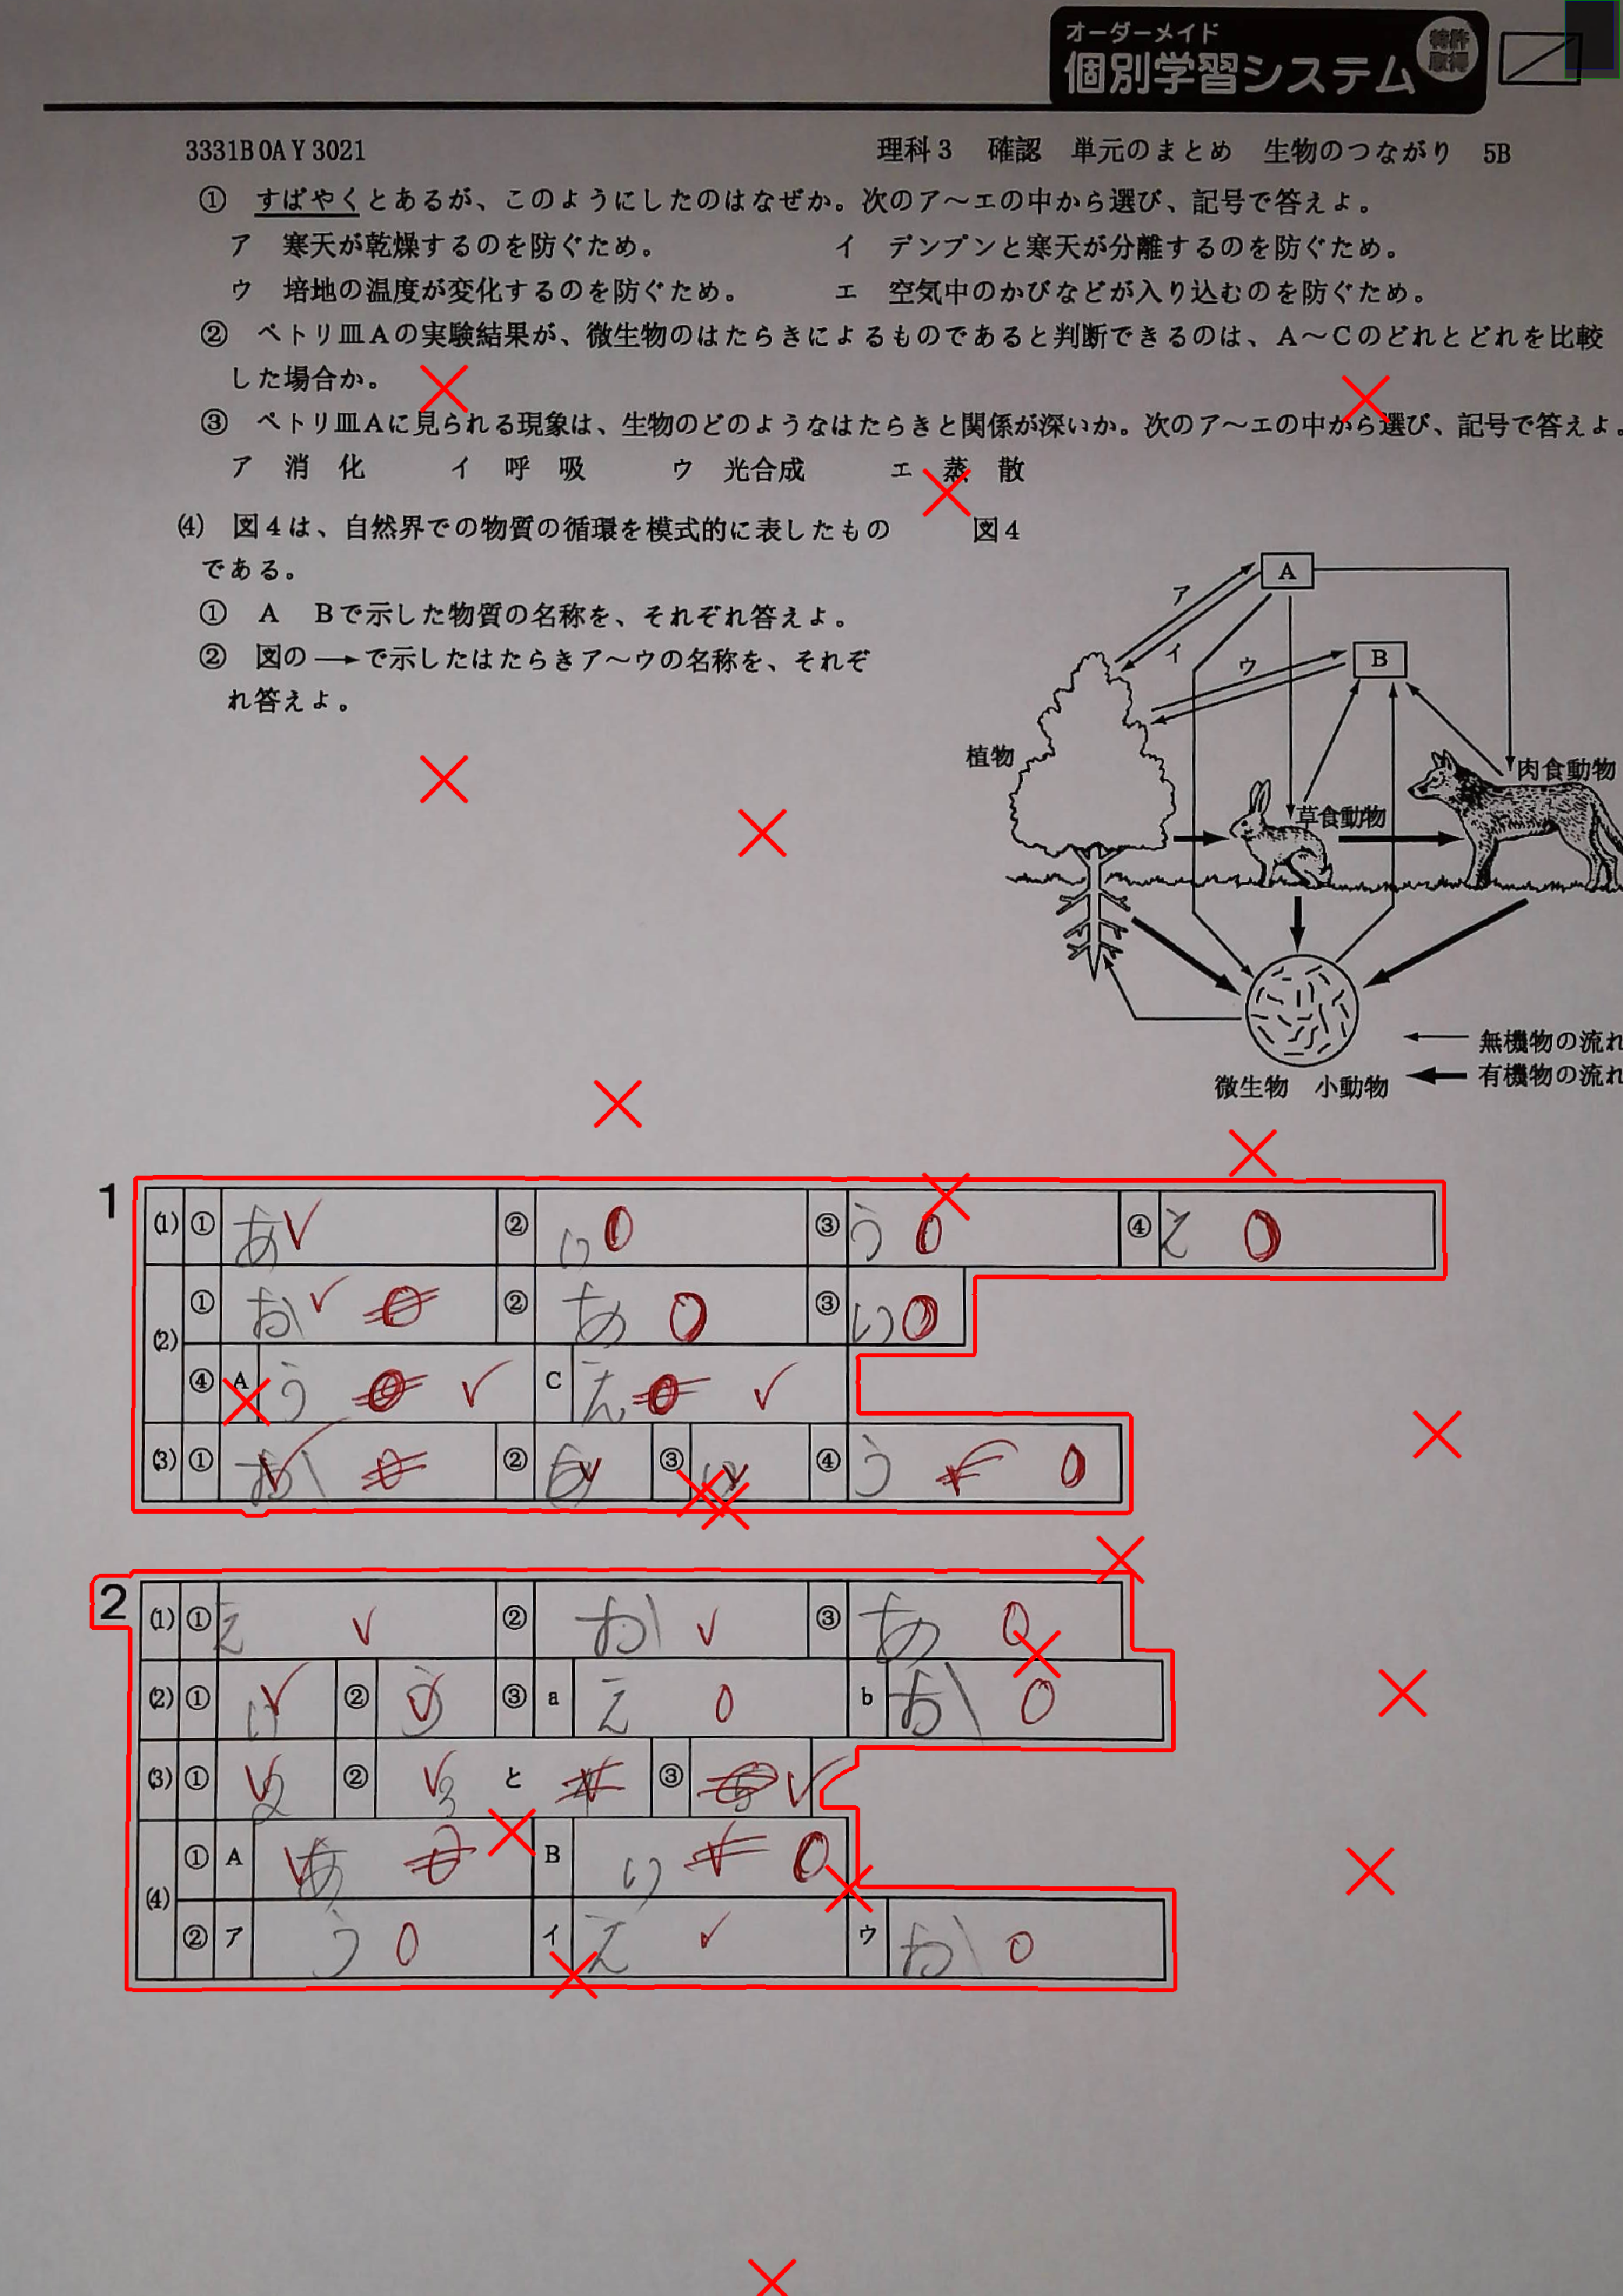 オーダーメイド
個別学習システム
特許
取得
3331B0AY3021
理科3 確認 単元のまとめ 生物のつながり 5B
① すばやくとあるが、このようにしたのはなぜか。次のア~エの中から選び、記号で答えよ。
ア 寒天が乾燥するのを防ぐため。 イ デンプンと寒天が分離するのを防ぐため。
ウ 培地の温度が変化するのを防ぐため。 エ 空気中のかびなどが入り込むのを防ぐため。
② ペトリ皿Aの実験結果が、微生物のはたらきによるものであると判断できるのは、A~Cのどれとどれを比較
した場合か。
③ ペトリ皿Aに見られる現象は、生物のどのようなはたらきと関係が深いか。次のア~エの中から選び、記号で答えよ。
ア 消化 イ 呼吸 ウ 光合成 エ 蒸散
(4) 図4は、自然界での物質の循環を模式的に表したもの
である。
① A Bで示した物質の名称を、それぞれ答えよ。
② 図の→で示したはたらきア~ウの名称を、それぞ
れ答えよ。
図4
A
ア
イ
ウ
B
植物
肉食動物
草食動物
無機物の流れ
有機物の流れ
微生物 小動物
1
(1) ① あ ② い ③ う ④ え
(2) ① お ② あ ③ い
④ A う C え
(3) ① お ② あ ③ い ④ う
2
(1) ① え ② お ③ あ
(2) ① い ② う ③ a え b お
(3) ① 2 ② 3 と ③
(4) ① A あ B い
② ア う イ え ウ お